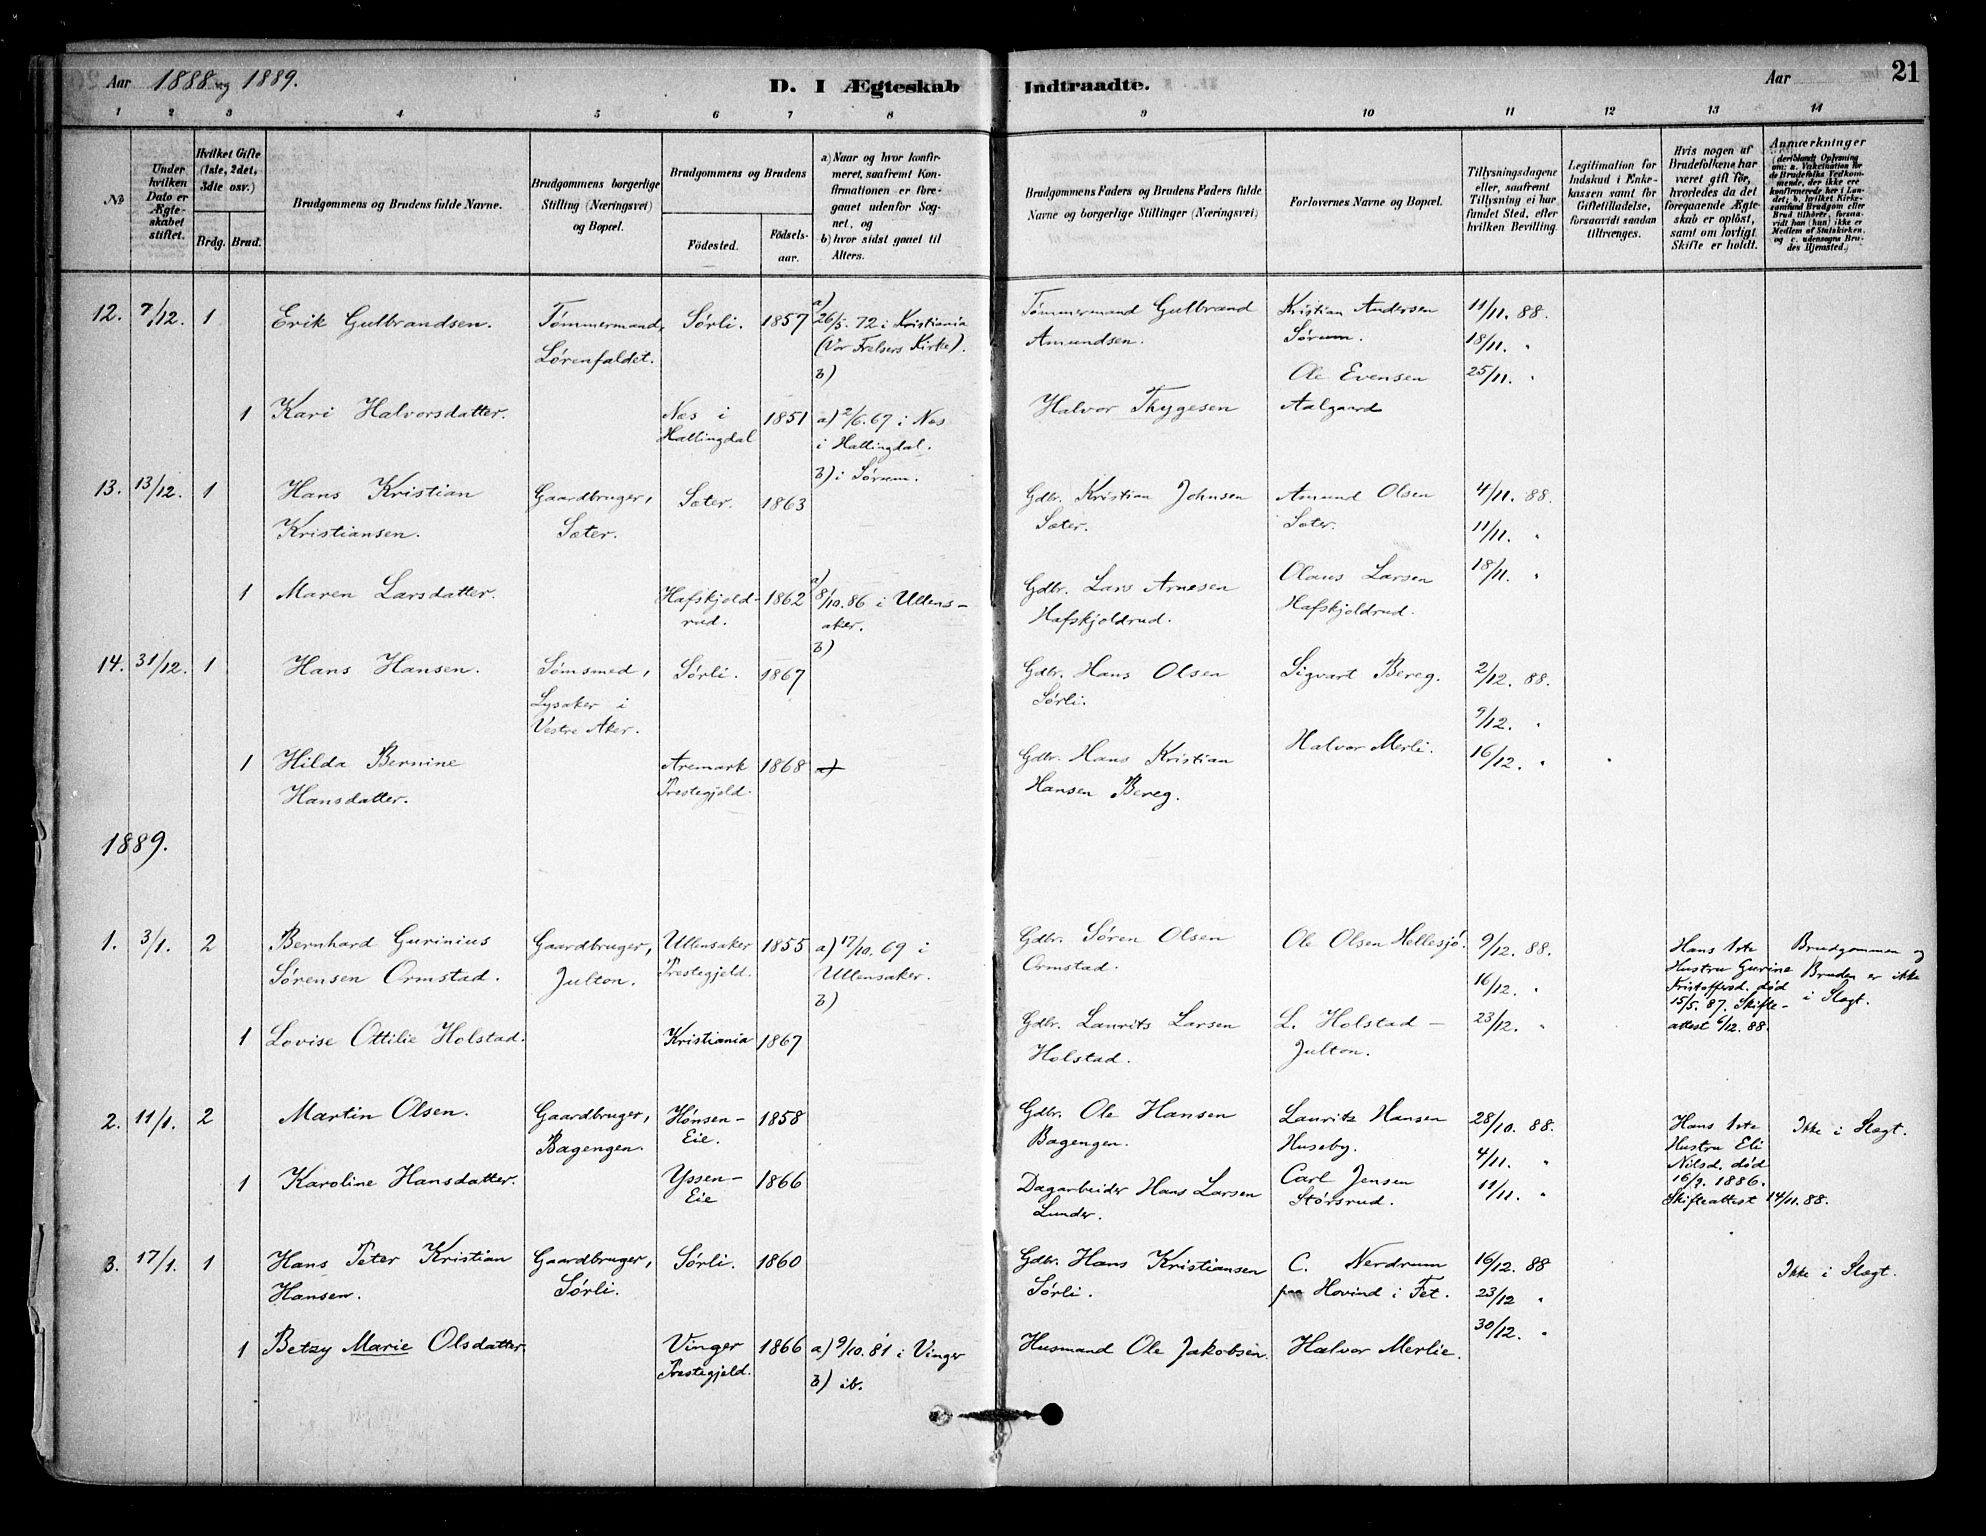 Aar 1888 og 1889.
D. I Ægteskab Indtraadte.
Aar
21
1 2 3 4 5 6 7 8 9 10 11 12 13 14
No
Under hvilken Dato er Ægteskabet stiftet.
Hvilket Gifte (1ste, 2det, 3die osv.)
Brdg. Brud.
Brudgommens og Brudens fulde Navne.
Brudgommens borgerlige Stilling (Næringsvei) og Bopæl.
Brudgommens og Brudens
Fødested.
Fødselsaar.
a) Naar og hvor konfirmeret, saafremt Konfirmationen er foregaaet udenfor Sognet, og
b) hvor sidst gaaet til Alters.
Brudgommens Faders og Brudens Faders fulde Navne og borgerlige Stillinger (Næringsvei)
Forlovernes Navne og Bopæl.
Tillysningsdagene eller, saafremt Tillysning ei har fundet Sted, efter hvilken Bevilling.
Legitimation for Indskud i Enkekassen samt for Giftetilladelse, forsaavidt saadan tiltrænges.
Hvis nogen af Brudefolkene har været gift før, hvorledes da det foregaaende Ægteskab er opløst, samt om lovligt Skifte er holdt.
Anmærkninger
(deriblandt Oplysning om: a. Vakcination for de Brudefolks Vedkommende, der ikke ere konfirmerede her i Landet; b. hvilket Kirkesamfund Brudgom eller Brud tilhører, forsaavidt han (hun) ikke er Medlem af Statskirken, og c. udensogns Brudes Hjemsted.)
12. 7/12. 1 Erik Gulbrandsen. Tømmermand, Sørli. 1857 a) 26/5. 72 i Kristiania Tømmermand Gulbrand Kristian Andersen 11/11. 88.
Lørenfaldet. (Vor Frelsers Kirke). Amundsen. Sørum. 18/11. "
b) Ole Evensen 25/11. "
1 Kari Halvorsdatter. Nes i 1851 a) 2/6. 67 i Nes Halvor Thygesen Aalgaard
Hallingdal i Hallingdal.
b) i Sørum.
13. 13/12. 1 Hans Kristian Gaardbruger, Sæter. 1863 Gdbr. Kristian Johnsen Amund Olsen 4/11. 88.
Kristiansen. Sæter. Sæter. Sæter. 11/11. "
1 Maren Larsdatter. Hafskjold- 1862 a) 8/10. 86 i Ullens- Gdbr. Lars Arnesen Olaus Larsen 18/11. "
rud. aker. Hafskjoldrud. Hafskjoldrud.
b)
14. 31/12. 1 Hans Hansen. Sømsmed, Sørli. 1867 Gdbr. Hans Olsen Sigvart Bereg. 2/12. 88.
Lysaker i Sørli. 9/12. "
Vestre Aker.
1 Hilda Bernine Aremark 1868 a) Gdbr. Hans Kristian Halvor Merli. 16/12. "
Hansdatter. Prestegjeld. Hansen Bereg.
1889.
1. 3/1. 2 Bernhard Gurinius Gaardbruger, Ullensaker 1855 a) 17/10. 69 i Gdbr. Søren Olsen Ole Olsen Hellesjø. 9/12. 88. Hans 1ste Brudgommen og
Sørensen Ormstad. Julton. Prestegjeld. Ullensaker. Ormstad. 16/12. " Hustru Gurine Bruden er ikke
b) Kristoffersd. død i Slegt.
15/5. 87. Skifte-
1 Lovise Ottilie Holstad. Kristiania 1867 Gdbr. Laurits Larsen L. Holstad - 23/12. " attest 6/12. 88.
Holstad. Julton.
2. 11/1. 2 Martin Olsen. Gaardbruger, Hønsen- 1858 Gdbr. Ole Hansen Lauritz Hansen 28/10. 88. Hans 1ste Ikke i Slegt.
Bagengen. Eie. Bagengen. Huseby. 4/11. " Hustru Eli
Nilsd. død
1 Karoline Hansdatter. Yssen- 1866 Dagarbeider Hans Larsen Carl Jensen 11/11. " 16/9. 1886.
Eie Lunder. Størsrud. Skifteattest 14/11. 88.
3. 17/1. 1 Hans Peter Kristian Gaardbruger, Sørli. 1860 Gdbr. Hans Kristiansen C. Nerdrum 16/12. 88 Ikke i Slegt.
Hansen. Sørli. Sørli. paa Hovind i Fet. 23/12 "
30/12. "
1 Betzy Marie Olsdatter Vinger 1866 a) 9/10. 81 i Vinger Husmand Ole Jakobsen. Halvor Merlie.
Prestegjeld. b) ib.